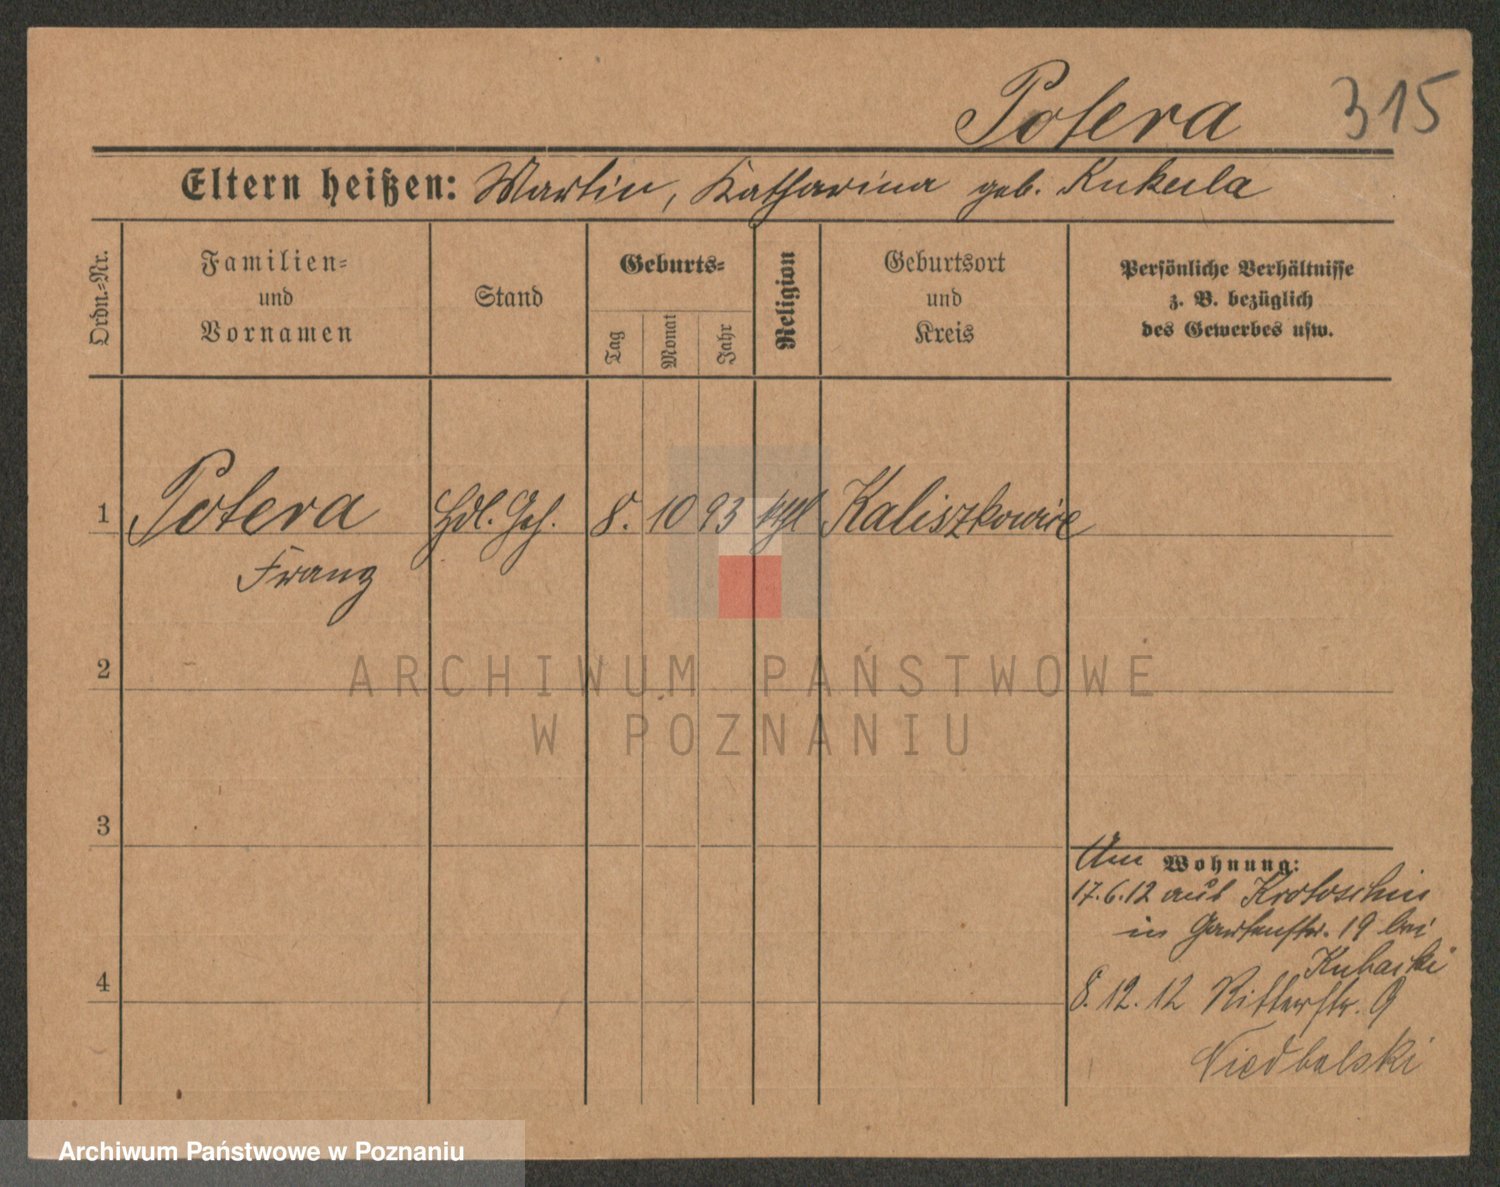 Potera 315
Eltern heißen: Martin, Katharina geb. Kukula
Ordn.=Nr.
Familien=
und
Vornamen
Stand
Geburts=
Tag
Monat
Jahr
Religion
Geburtsort
und
Kreis
Persönliche Verhältnisse
z. B. bezüglich
des Gewerbes usw.
1 Potera Hdl. Geh. 8. 10 93 kthl Kaliszkowice
Franz
2
3
4
Wohnung:
17.6.12 aus Krotoschin
in Gartenstr. 19 bei
Kubacki
8.12.12 Ritterstr. 9
Niedbalski
ARCHIWUM PAŃSTWOWE
W POZNANIU
Archiwum Państwowe w Poznaniu